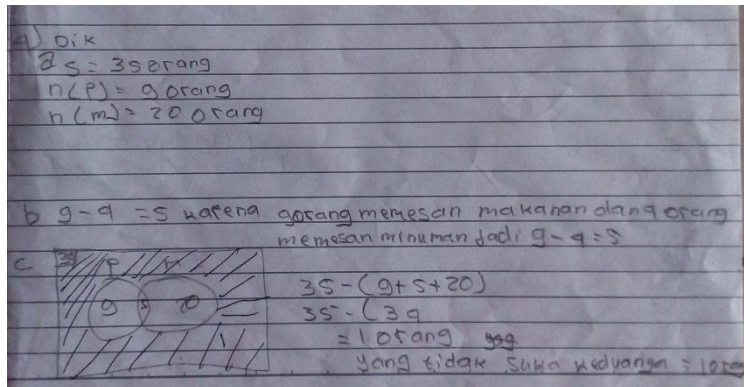 4) Dik
a s = 35 orang
n(P) = 9 orang
n(m) = 20 orang
b 9-4 = 5 karena 9 orang memesan makanan dan 4 orang
memesan minuman Jadi 9-4=5
c P
9 5 20
1
35-(9+5+20)
35-(34
= 1 orang
yang tidak suka keduanya = 1 orang